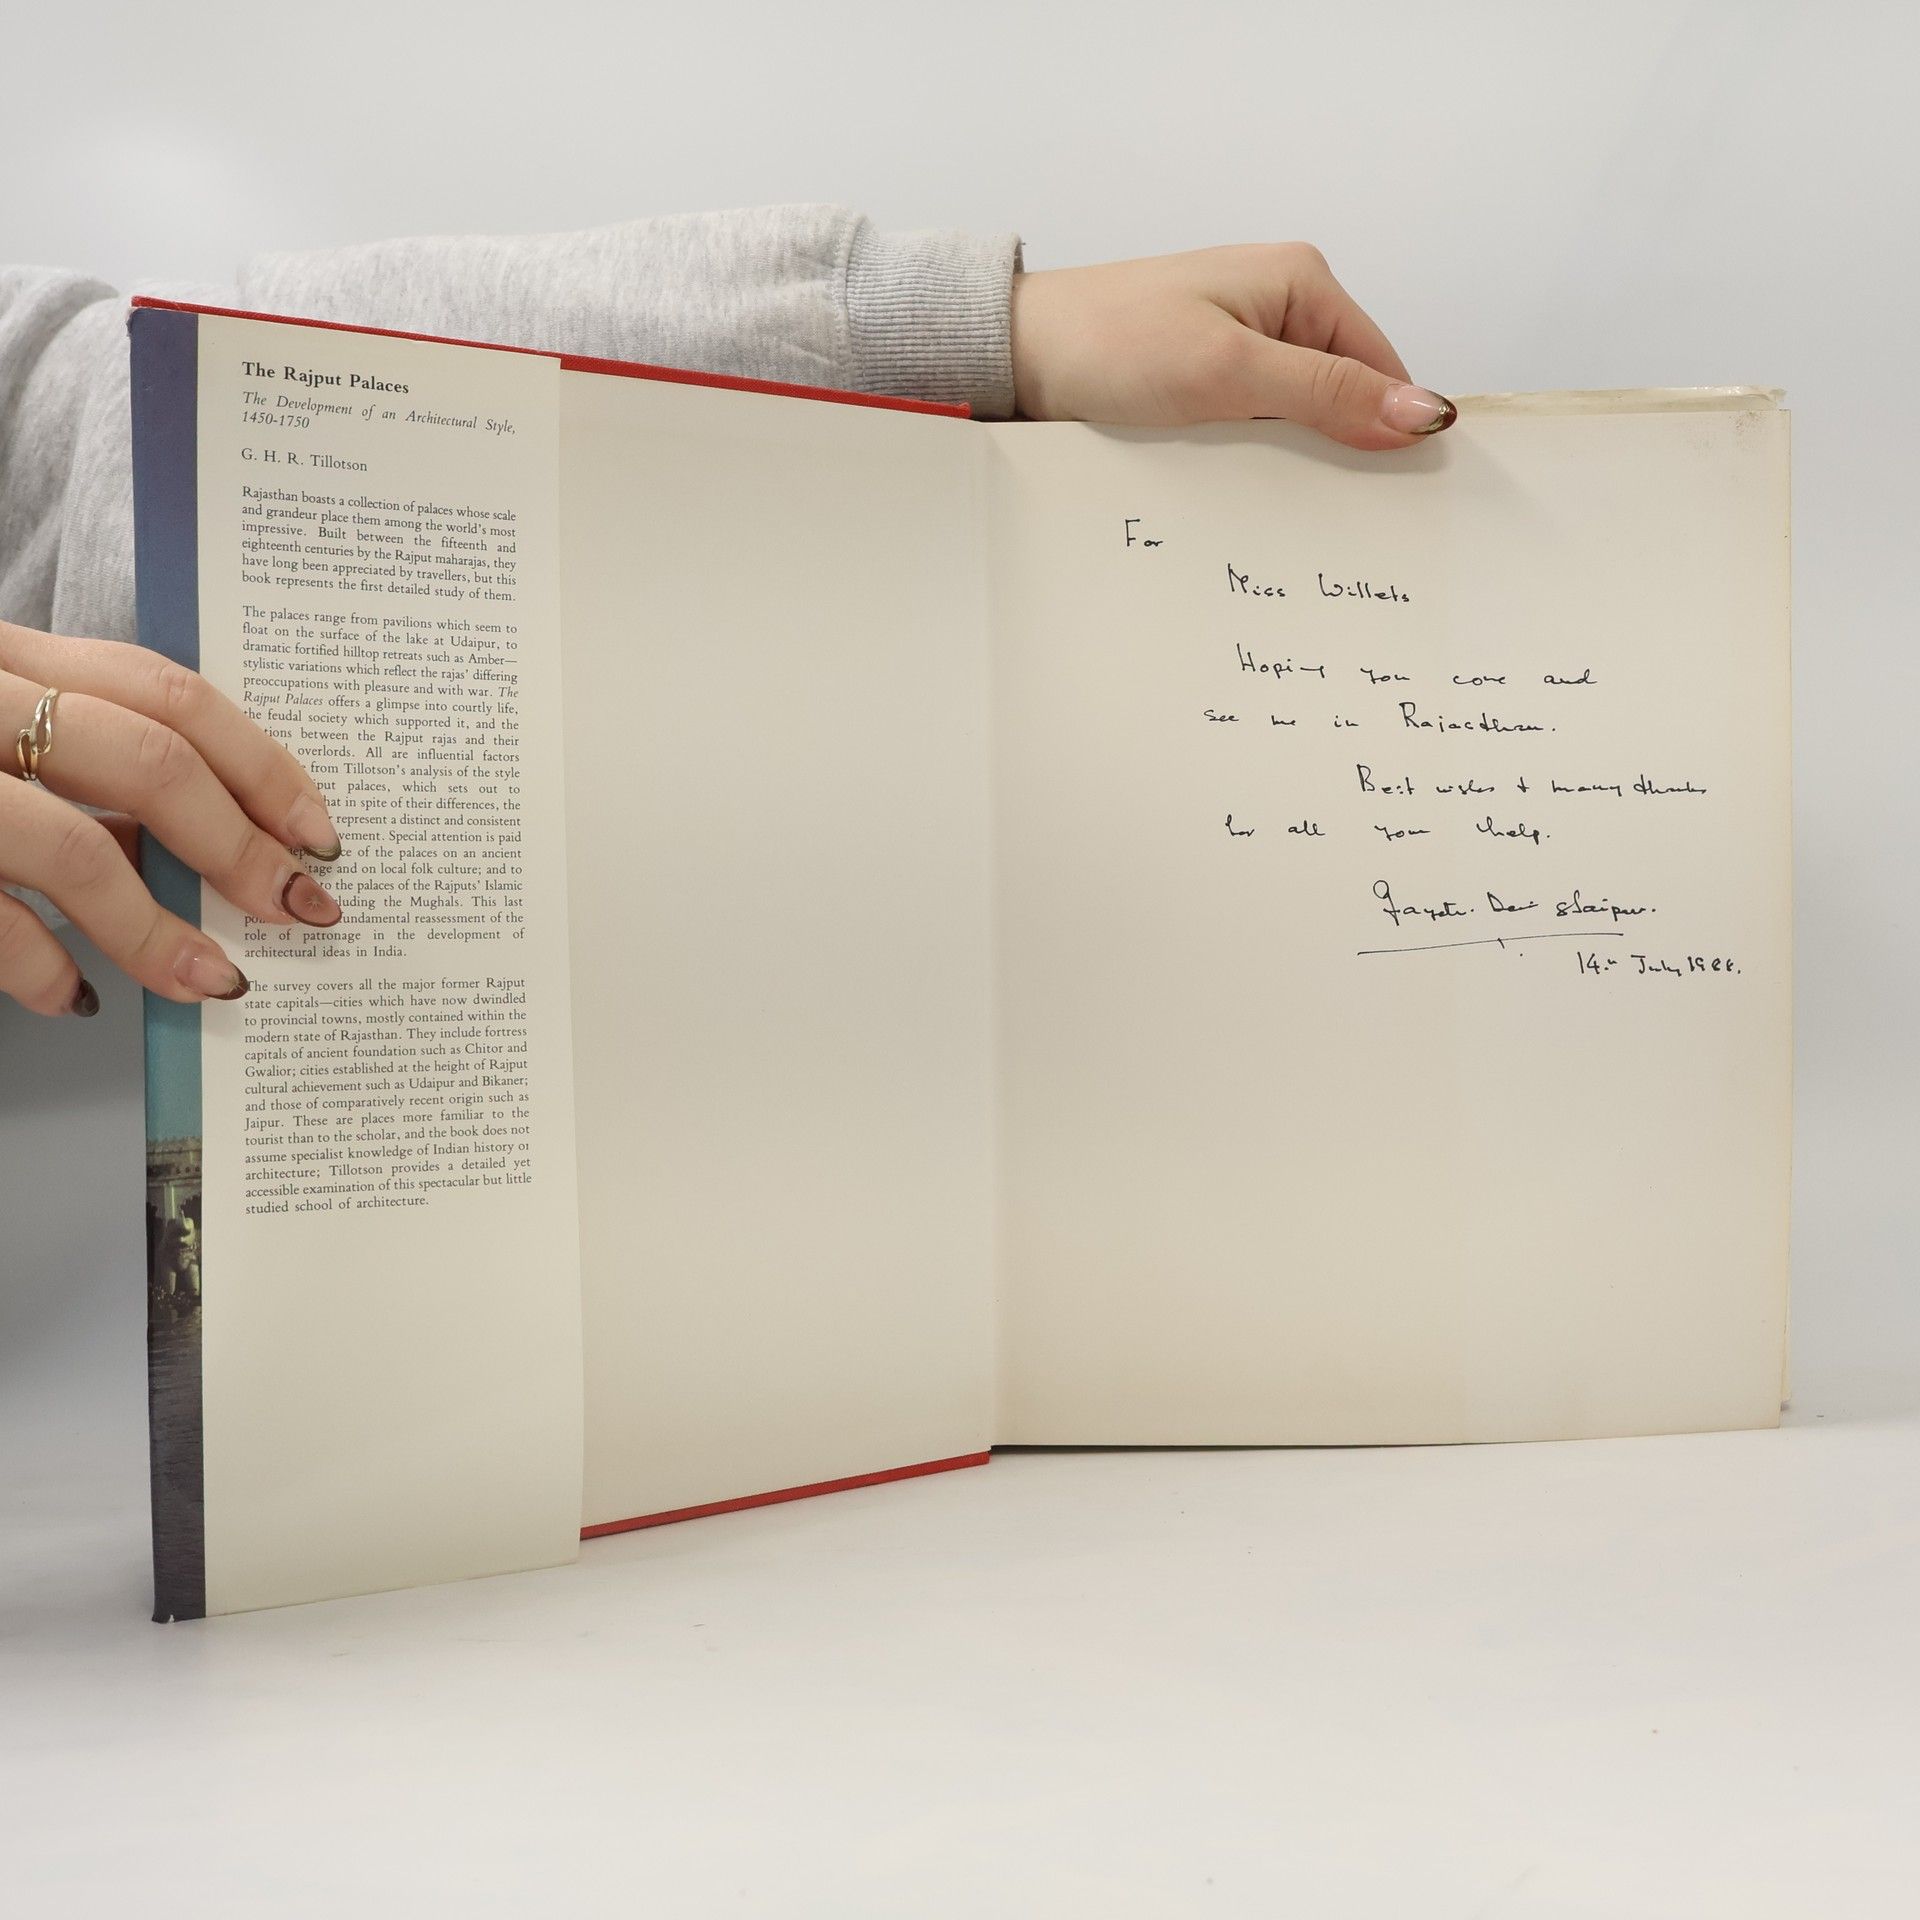 The Rajput Palaces
The Development of an Architectural Style,
1450-1750
G. H. R. Tillotson
Rajasthan boasts a collection of palaces whose scale
and grandeur place them among the world's most
impressive. Built between the fifteenth and
eighteenth centuries by the Rajput maharajas, they
have long been appreciated by travellers, but this
book represents the first detailed study of them.
The palaces range from pavilions which seem to
float on the surface of the lake at Udaipur, to
dramatic fortified hilltop retreats such as Amber—
stylistic variations which reflect the rajas' differing
preoccupations with pleasure and with war. The
Rajput Palaces offers a glimpse into courtly life,
the feudal society which supported it, and the
tions between the Rajput rajas and their
overlords. All are influential factors
from Tillotson's analysis of the style
put palaces, which sets out to
hat in spite of their differences, the
represent a distinct and consistent
vement. Special attention is paid
ce of the palaces on an ancient
tage and on local folk culture; and to
to the palaces of the Rajputs' Islamic
luding the Mughals. This last
undamental reassessment of the
role of patronage in the development of
architectural ideas in India.
The survey covers all the major former Rajput
state capitals—cities which have now dwindled
to provincial towns, mostly contained within the
modern state of Rajasthan. They include fortress
capitals of ancient foundation such as Chitor and
Gwalior; cities established at the height of Rajput
cultural achievement such as Udaipur and Bikaner;
and those of comparatively recent origin such as
Jaipur. These are places more familiar to the
tourist than to the scholar, and the book does not
assume specialist knowledge of Indian history or
architecture; Tillotson provides a detailed yet
accessible examination of this spectacular but little
studied school of architecture.
For
Miss Willets
Hoping you come and
see me in Rajasthan.
Best wishes + many thanks
for all your help.
Gayatri Devi of Jaipur.
14th July 1988.